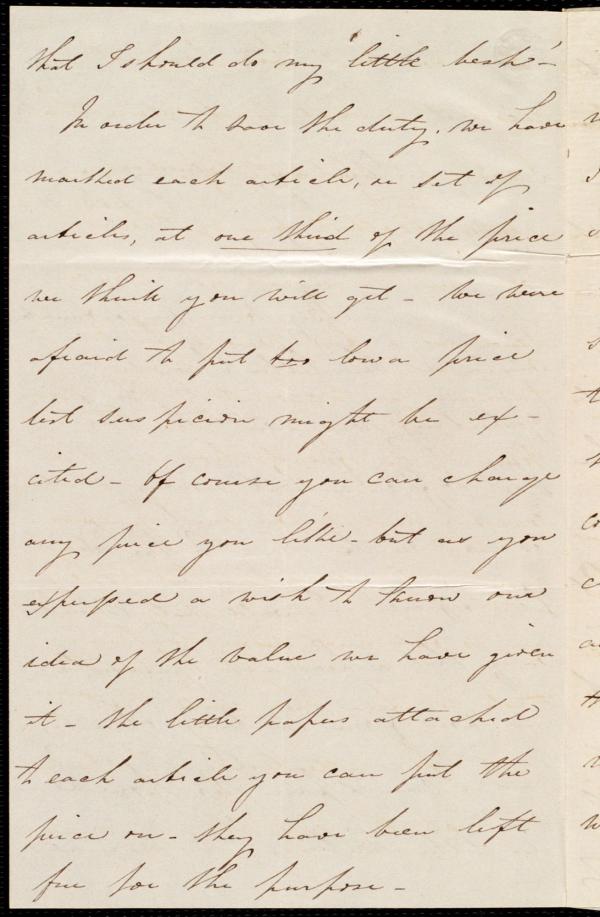 that I should do my 'little best' –
In order to save the duty, we have
marked each article, or set of
articles, at one third of the price
we think you will get – We were
afraid to put too low a price
lest suspicion might be ex-
cited – Of course you can change
any price you like – but as you
expressed a wish to know our
idea of the value we have given
it – The little papers attached
to each article you can put the
price on – they have been left
for the purpose –